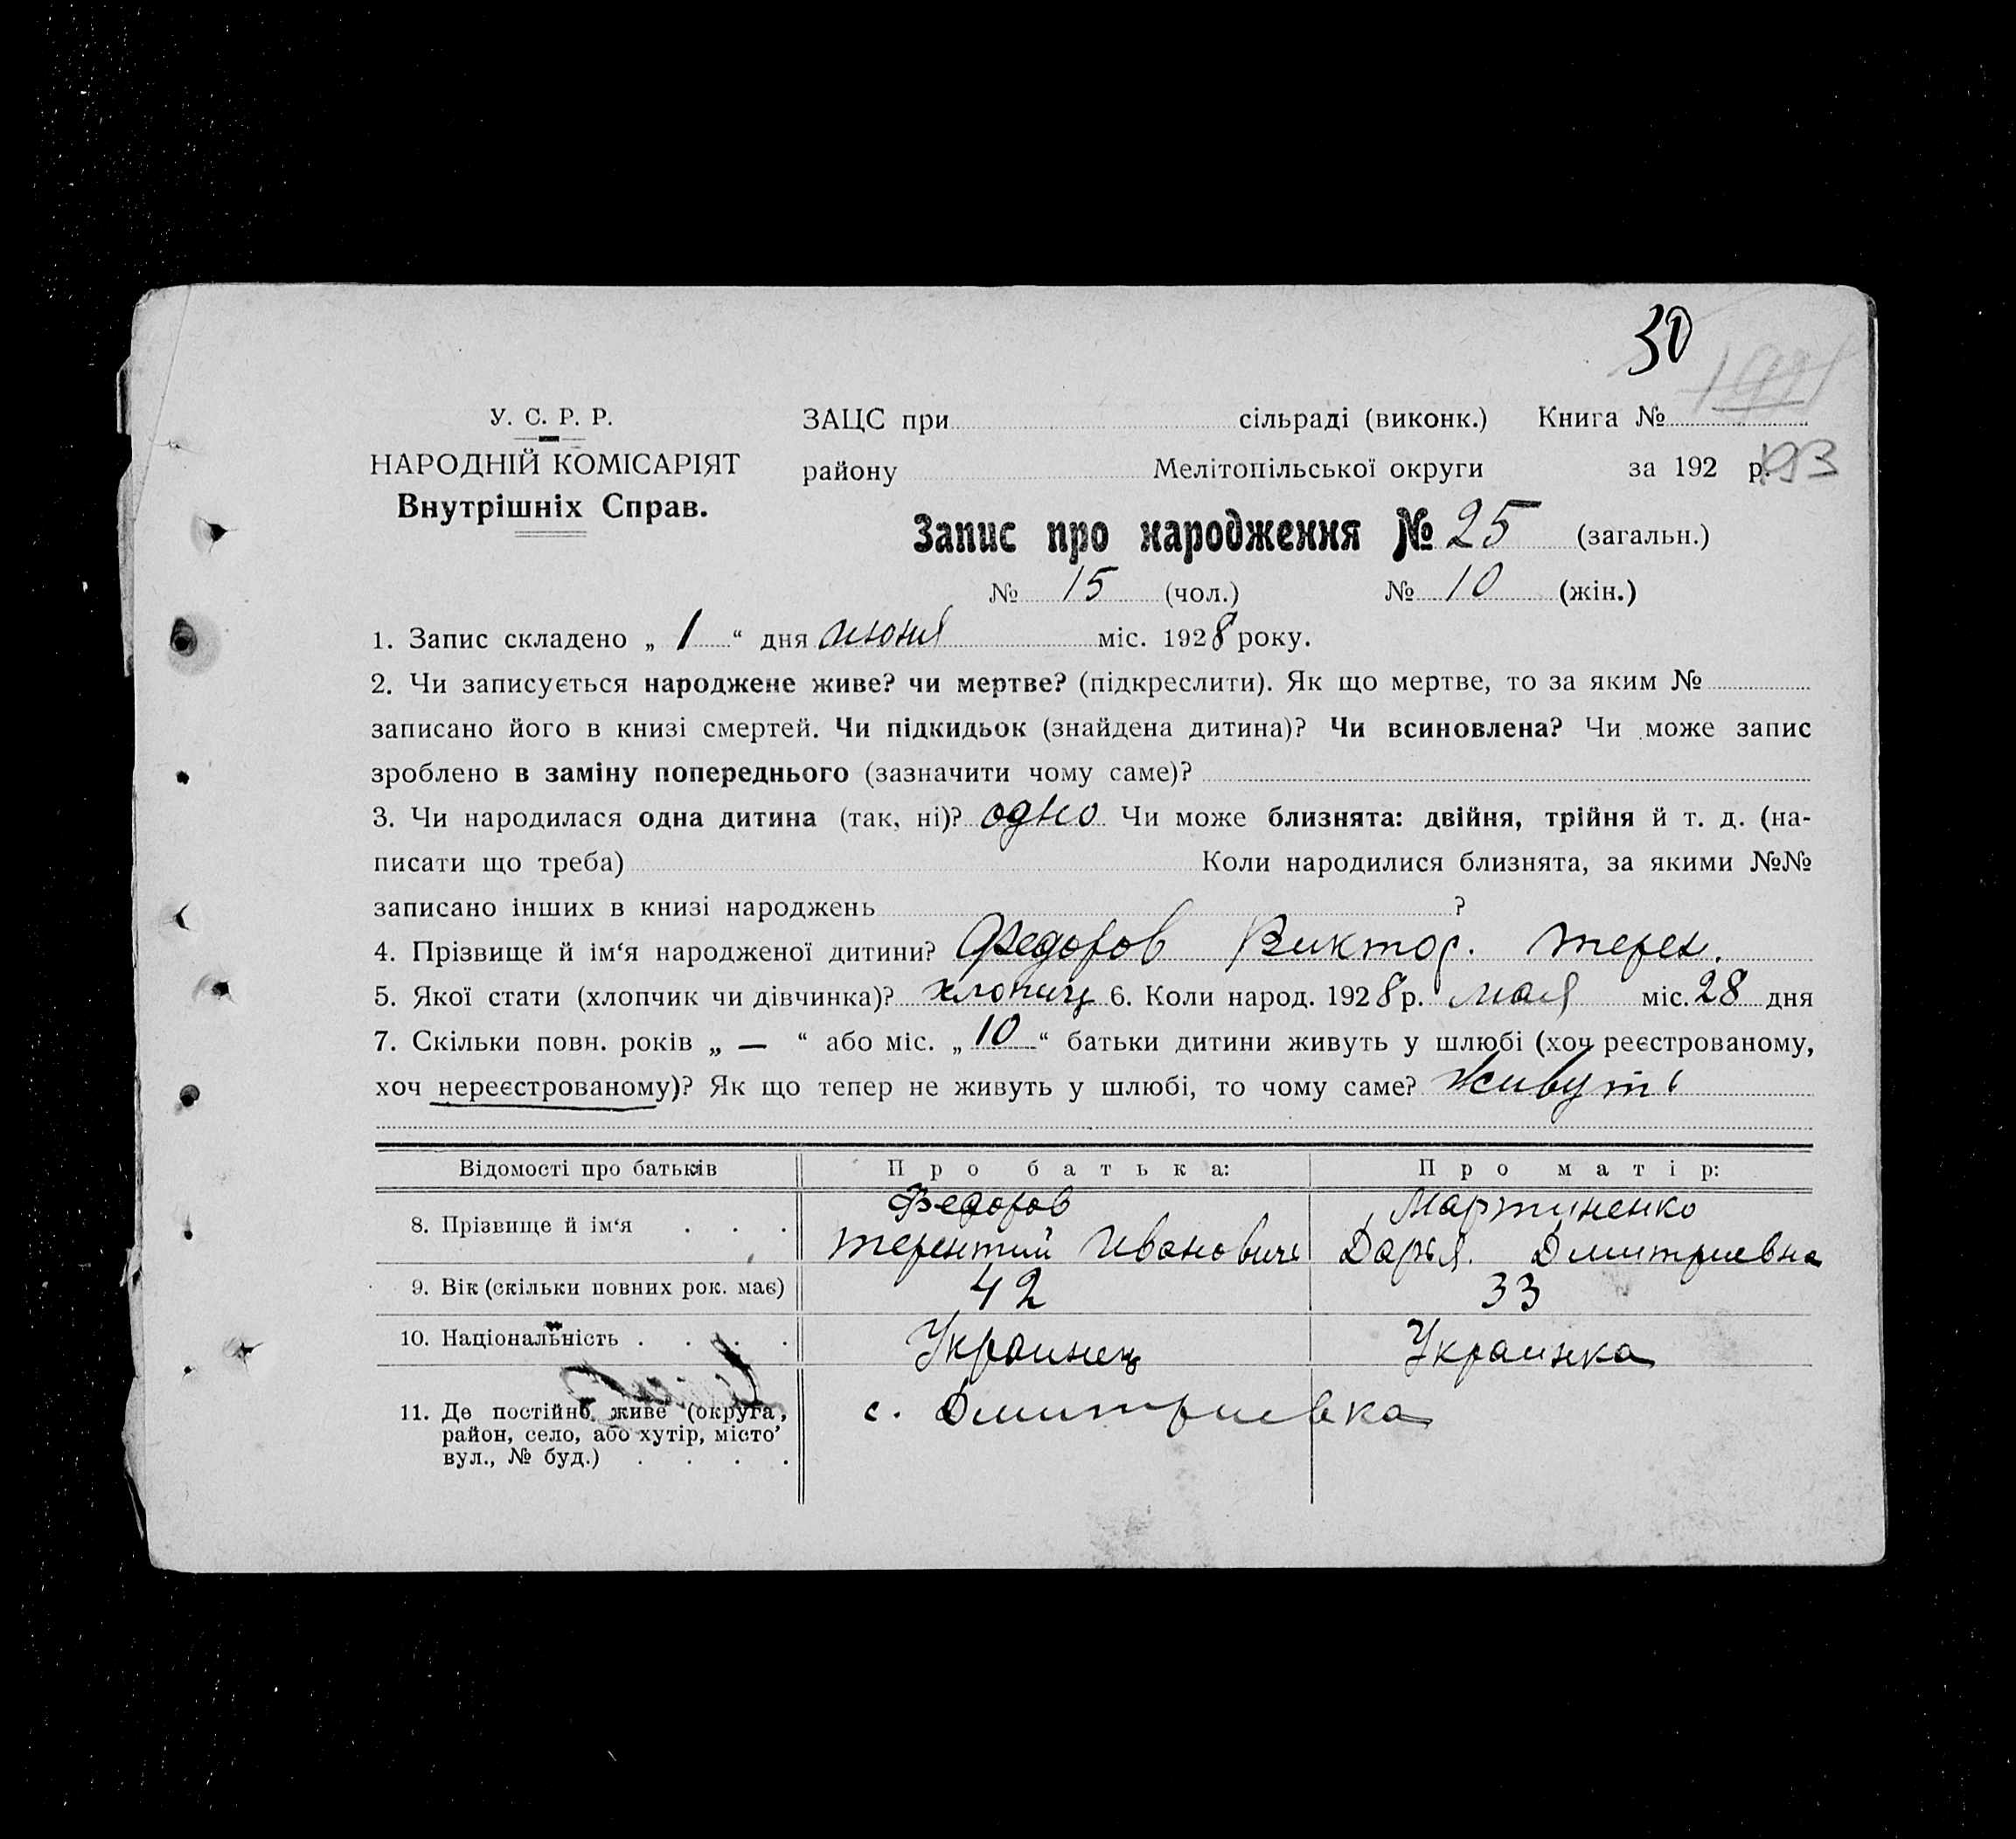 30
У. С. Р. Р. ЗАЦС при сільраді (виконк.) Книга №
НАРОДНІЙ КОМІСАРІЯТ району Мелітопільської округи за 192 р. 193
Внутрішніх Справ.
Запис про народження № 25 (загальн.)
№ 15 (чол.) № 10 (жін.)
1. Запис складено „ 1 “ дня июня міс. 1928 року.
2. Чи записується народжене живе? чи мертве? (підкреслити). Як що мертве, то за яким №
записано його в книзі смертей. Чи підкидьок (знайдена дитина)? Чи всиновлена? Чи може запис
зроблено в заміну попереднього (зазначити чому саме)?
3. Чи народилася одна дитина (так, ні)? одно Чи може близнята: двійня, трійня й т. д. (на-
писати що треба) Коли народилися близнята, за якими №№
записано інших в книзі народжень ?
4. Прізвище й ім‘я народженої дитини? Федоров Виктор. Терен.
5. Якої стати (хлопчик чи дівчинка)? хлопиц 6. Коли народ. 1928 р. мая міс. 28 дня
7. Скільки повн. років „ — “ або міс. „ 10 “ батьки дитини живуть у шлюбі (хоч реєстрованому,
хоч нереєстрованому)? Як що тепер не живуть у шлюбі, то чому саме? живуть
Відомості про батьків Про батька: Про матір:
Федоров Мартиненко
8. Прізвище й ім‘я . . . Терентий Иванович Дарья. Дмитриевна
9. Вік (скільки повних рок. має) 42 33
10. Національність . . . . Украинец Украинка
11. Де постійно живе (округа, с. Дмитриевка
район, село, або хутір, місто,
вул., № буд.) . . . .